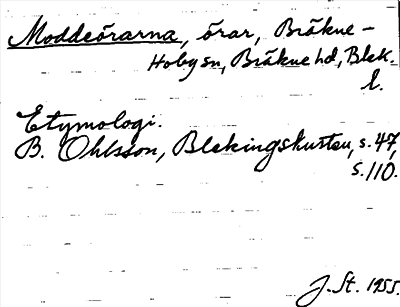 Moddeörarna, örar, Bräkne-
Hoby sn, Bräkne hd, Blek.
l.
Etymologi.
B. Ohlsson, Blekingskusten, s. 47,
s. 110.
J. St. 1955.